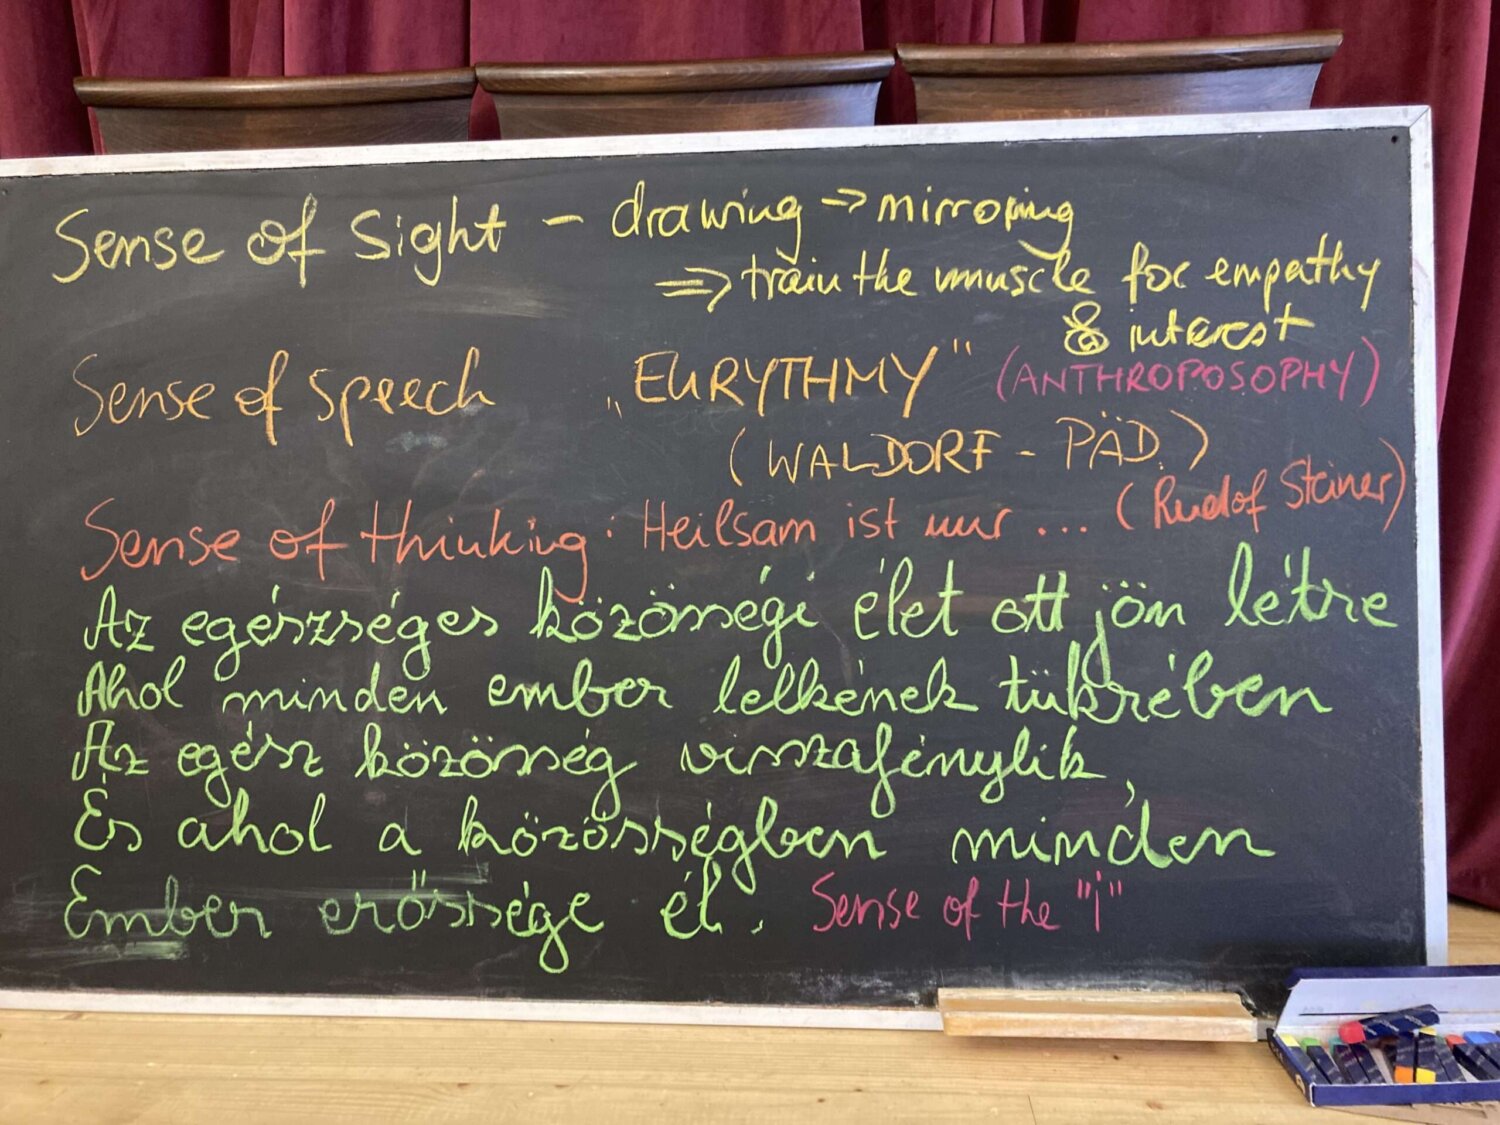 Sense of Sight - drawing → mirroring
⇒ train the muscle for empathy
& interest
Sense of speech „EURYTHMY" (ANTHROPOSOPHY)
(WALDORF - PÄD.)
Sense of thinking: Heilsam ist nur ... (Rudolf Steiner)
Az egészséges közösségi élet ott jön létre
Ahol minden ember lelkének tükrében
Az egész közösség visszafénylik,
És ahol a közösségben minden
Ember erőssége él. Sense of the "i"